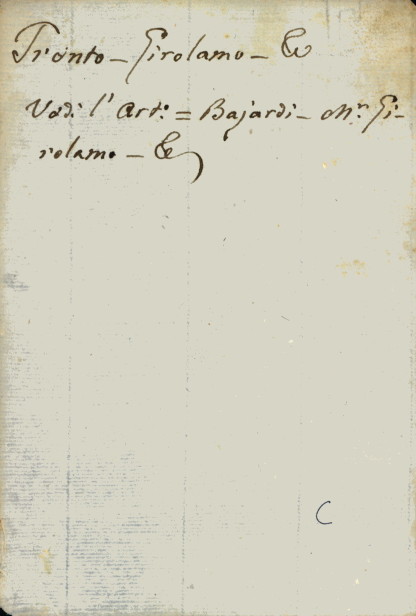 Tronto - Girolamo - &
Vedi l' Art.º = Bajardi - M.r Gi-
rolamo - &
C